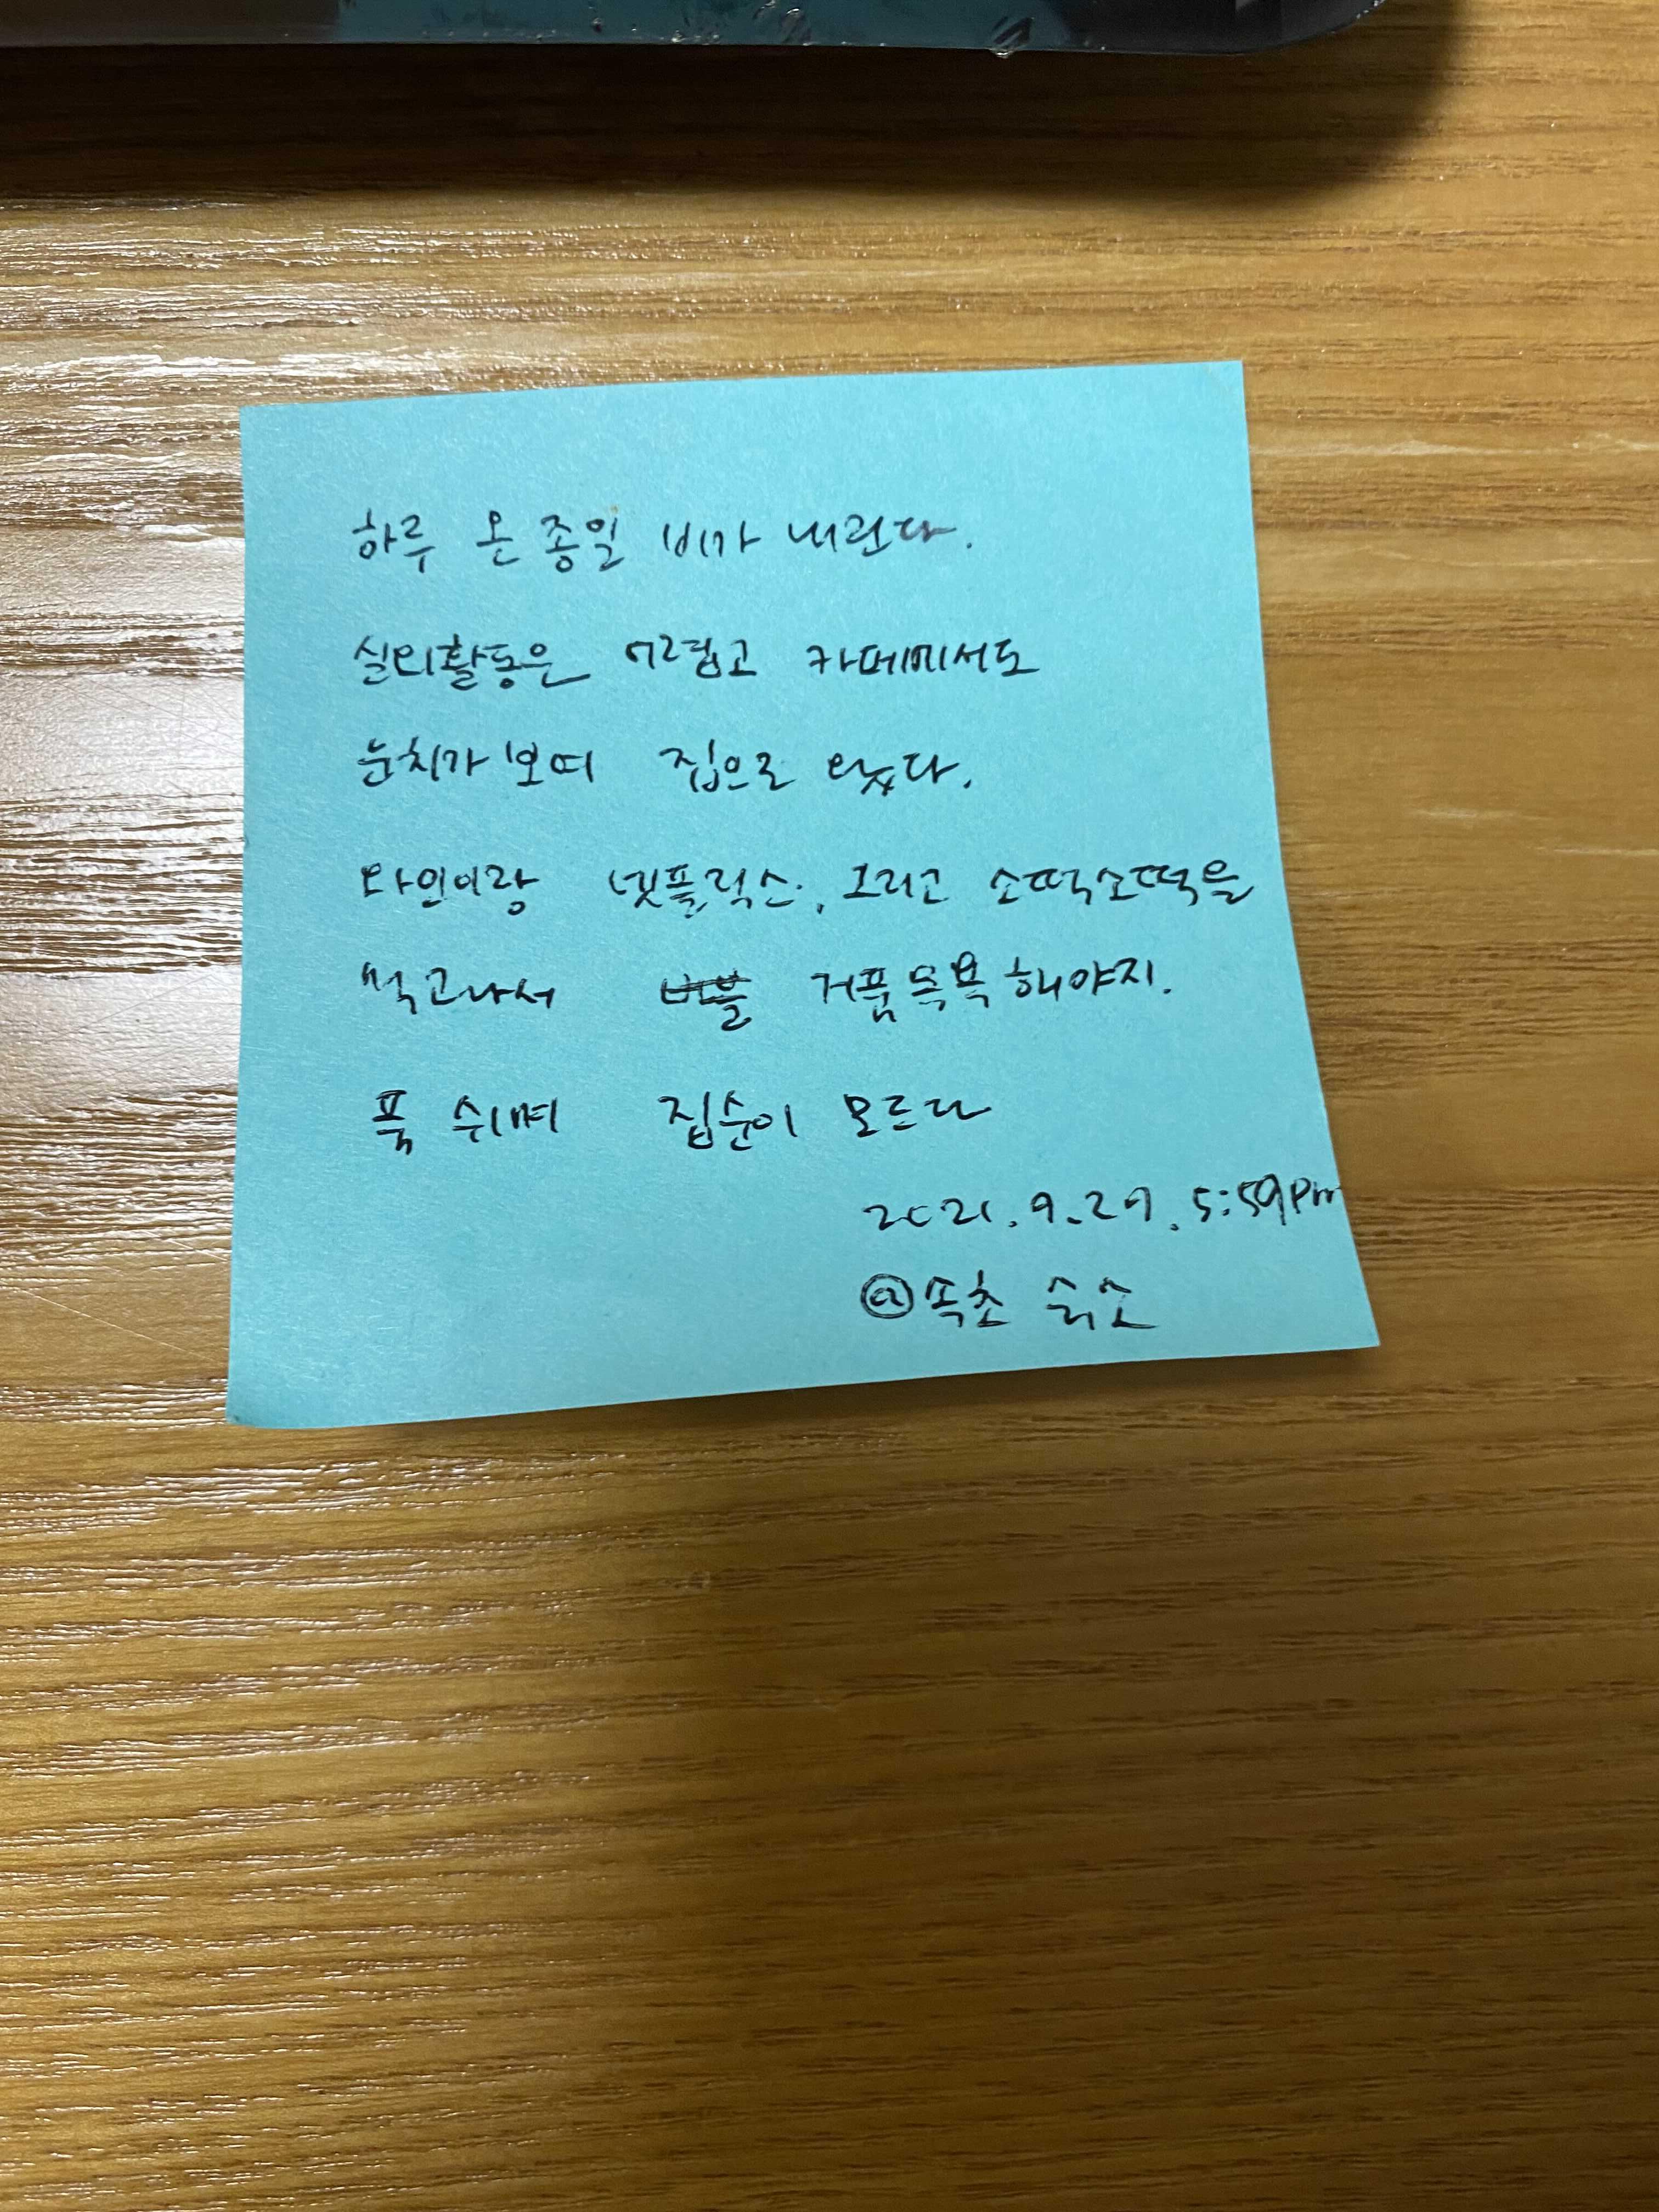 하루 온종일 비가 내린다.
실외활동은 어렵고 카페에서도
눈치가 보여 집으로 왔다.
와인이랑 넷플릭스, 그리고 소떡소떡을
먹고나서 버블 거품목욕 해야지.
푹 쉬며 집순이 모드다
2021. 9. 29. 5:59pm
@속초 숙소